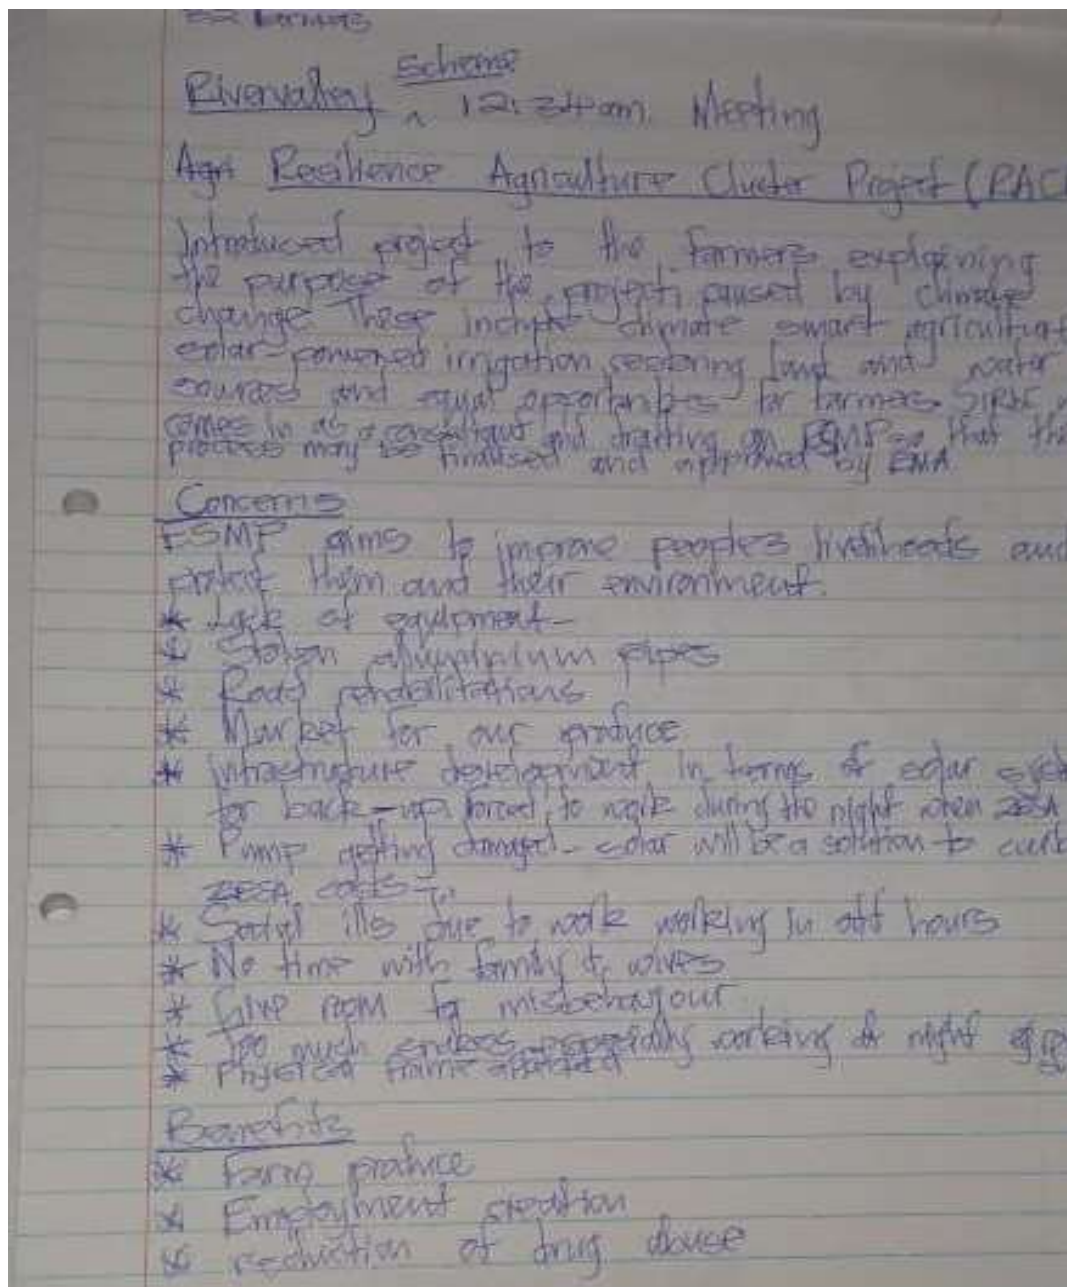 farmers
Scheme
Rivervalley ^ 12:34am Meeting
Agri Resilience Agriculture Cluster Project (RAC
Introduced project to the farmers explaining
the purpose of the project, caused by climate
change. These include climate smart agricultur
solar-powered irrigation, restoring land and water
sources and equal opportunities for farmers.
comes in as a consultant and drafting an ESMP so that the
process may be finalised and approved by EMA
Concerns
ESMP aims to improve peoples livelihoods and
protect them and their environment.
* Lack of equipment-
* Stolen alluminium pipes
* Road rehabilitations
* Market for our produce
* Infrastructure development in terms of solar syst
for back-up forced to work during the night when ZESA
* Pump getting damaged - solar will be a solution to curb
ZESA costs
* Social ills due to work working in odd hours
* No time with family & wives
* Give room to misbehaviour
* Too much snakes especially working at night eg
* Physical frame affected
Benefits
* Farm produce
* Employment creation
* reduction of drug abuse